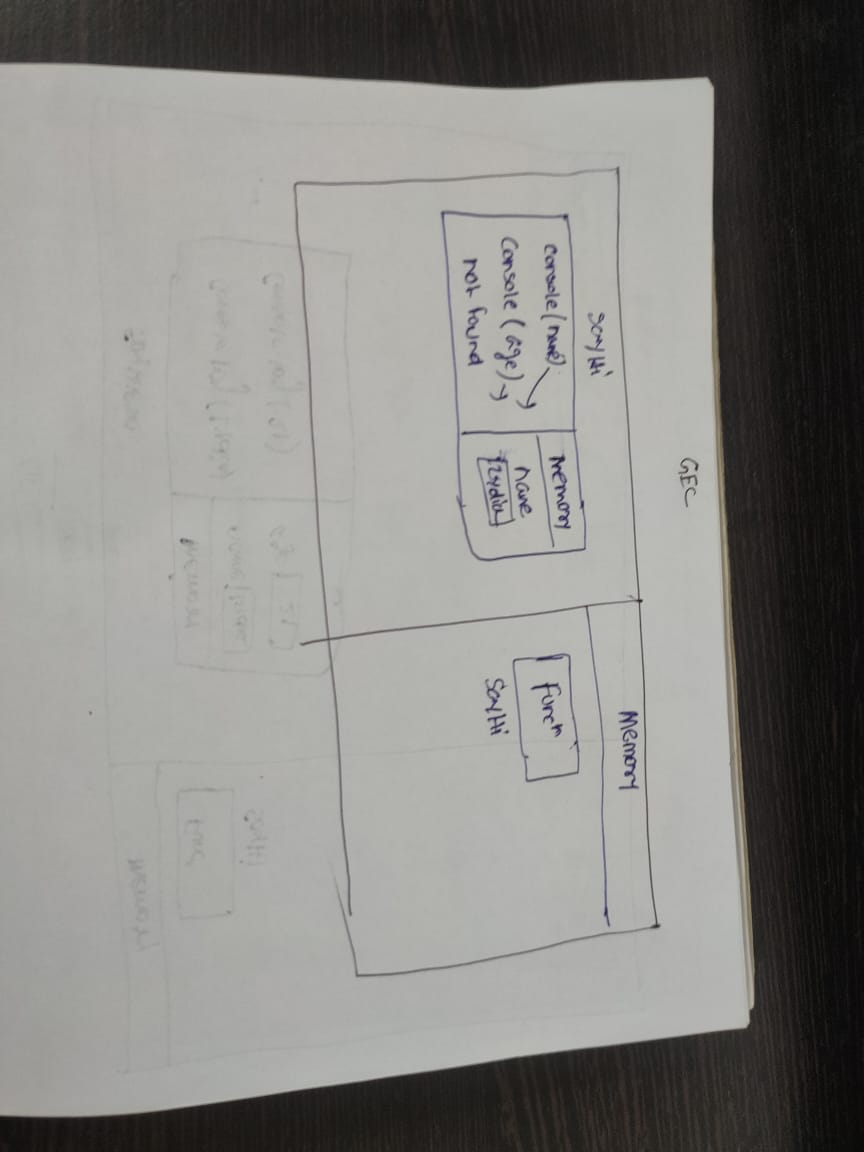 GEC
sayHi
Memory
console(name)
Console (age) →
not found
Memory
name
Lydia
Funcn
SayHi